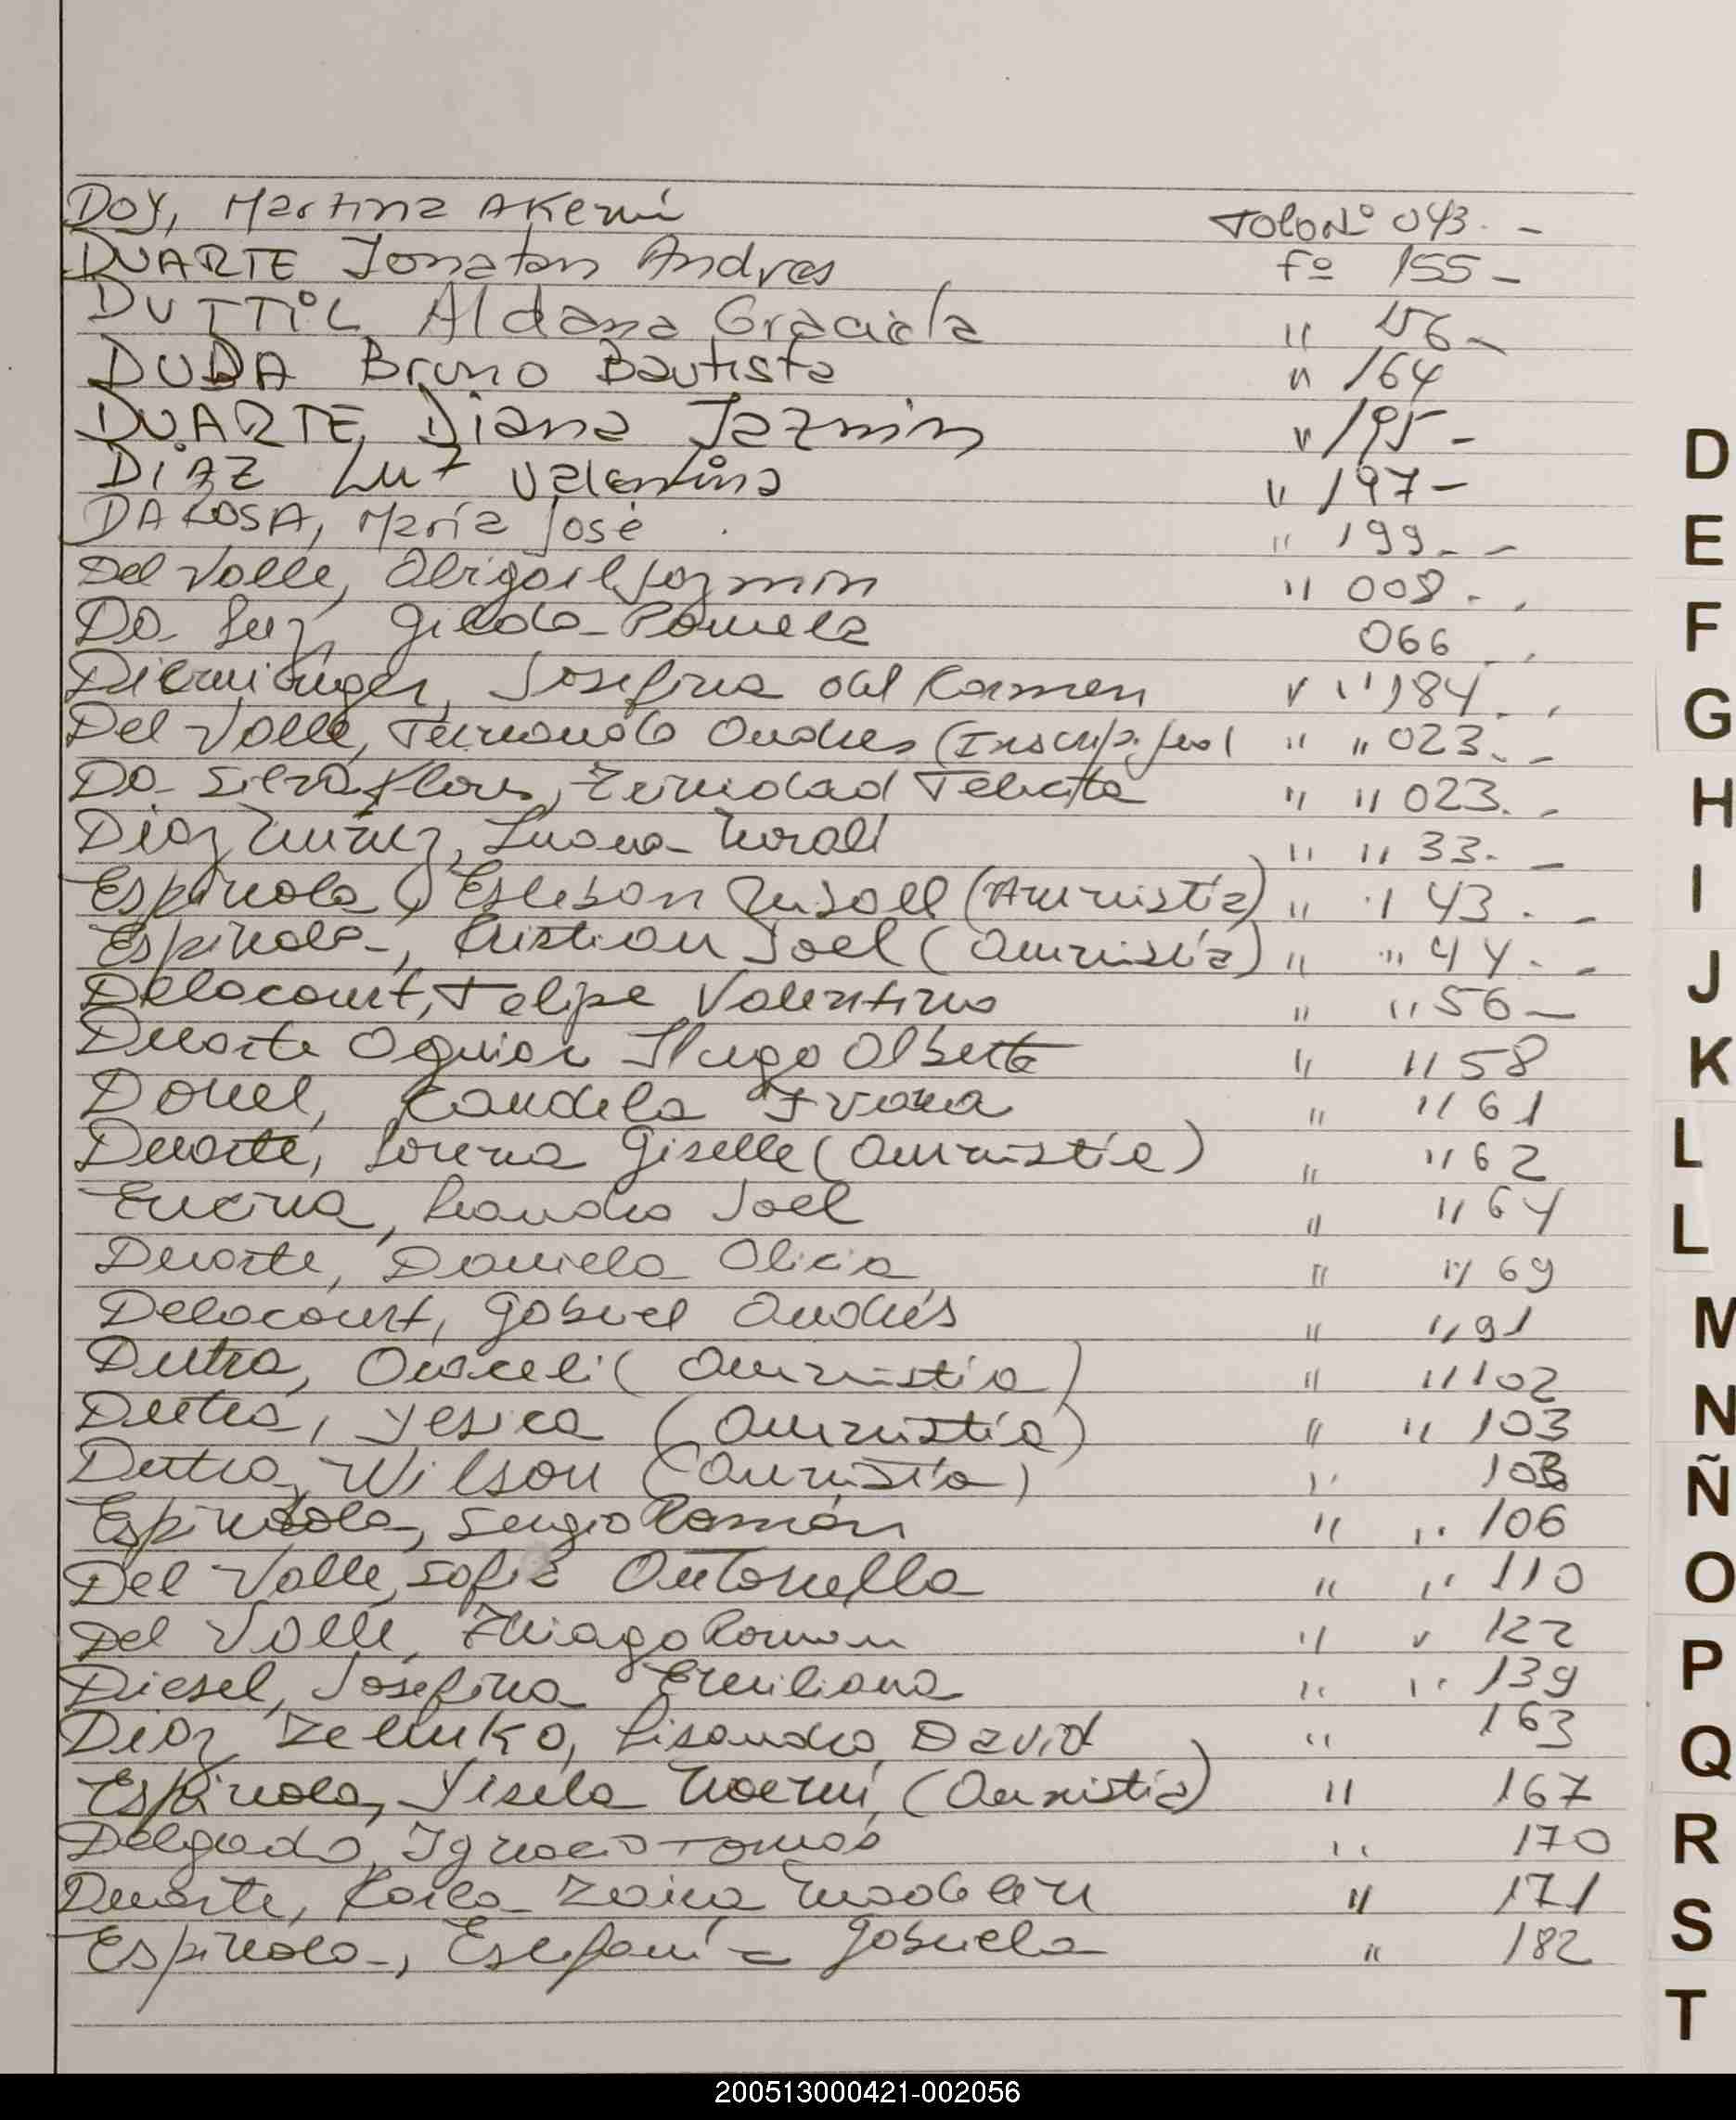 DOY, Martina AKemi Folo Nº 043. -
DUARTE Jonatan Andres Fº 155 -
DUTTIL Aldana Graciela " 156 -
DUDA Bruno Bautista " 164
DUARTE, Diana Jazmin " 195 -
DIAZ Luz Valentina " 197 -
DA ROSA, María José " 199 - -
Del Valle, Abigail Jazmin " 008 . .
Da Luz, Gilda Pamela 066
Josefina del Carmen " " 184 . .
Del Valle, Fernando Andres (Inscrip. " " 023. -
Da Silva Flores, Trinidad Felicita " " 023. -
Diaz Nuñez, Luana " " 33. -
Espinola, Esteban (Amnistía) " " 43. -
Espinola, Cristian Joel (Amnistía) " " 44. -
Delacourt, Felipe Valentino " " 56 -
Duarte Aguiar Hugo Alberto " " 58
Candela Ivana " " 61
Duarte, Lorena Giselle (Amnistía) " " 62
Encina, Leandro Joel " " 64
Duarte, Daniela Alicia " " 69
Delacourt, Gabriel Andrés " " 91
Dutra, (Amnistía) " " 102
Dutra, Yesica (Amnistía) " " 103
Dutra, Wilson (Amnistía) " 103
Espindola, Sergio Ramón " " 106
Del Valle, Sofia Antonella " " 110
Del Valle, Thiago Roman " " 122
Diesel, Josefina Emiliana " " 139
Diaz Zelinko, Lisandro David " 163
Espinola, Yisela Noemi, (Amnistía) " 167
Delgado, Ignacio Tomás " 170
Duarte, Karla Zaira Madelen " 171
Espinola, Estefanía Gabriela " 182
D
E
F
G
H
I
J
K
L
L
M
N
Ñ
O
P
Q
R
S
T
200513000421-002056